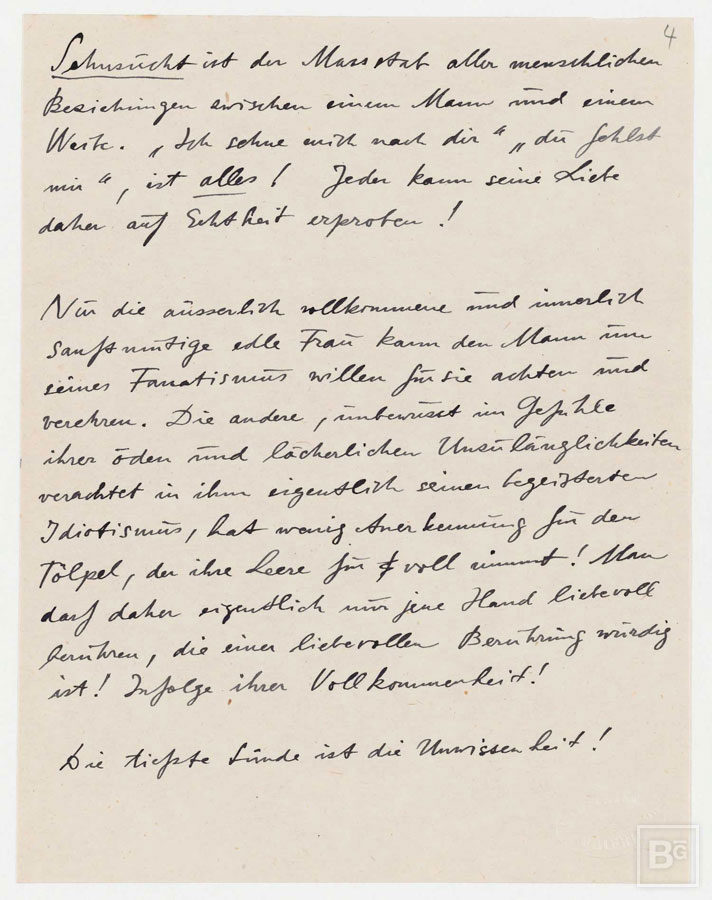 4
Sehnsucht ist der Massstab aller menschlichen
Beziehungen zwischen einem Mann und einem
Weibe. „Ich sehne mich nach dir“ „du fehlst
mir“, ist alles! Jeder kann seine Liebe
daher auf Echtheit erproben!
Nur die äusserlich vollkommene und innerlich
sanftmutige edle Frau kann den Mann um
seines Fanatismus willen für sie achten und
verehren. Die andere, unbewusst im Gefühle
ihrer öden und lächerlichen Unzulänglichkeiten
verachtet in ihm eigentlich seinen begeisterten
Idiotismus, hat wenig Anerkennung für den
Tölpel, der ihre Leere für voll nimmt! Man
darf daher eigentlich nur jene Hand liebevoll
berühren, die einer liebevollen Berührung würdig
ist! Infolge ihrer Vollkommenheit!
Die tiefste Sünde ist die Unwissenheit!
BG